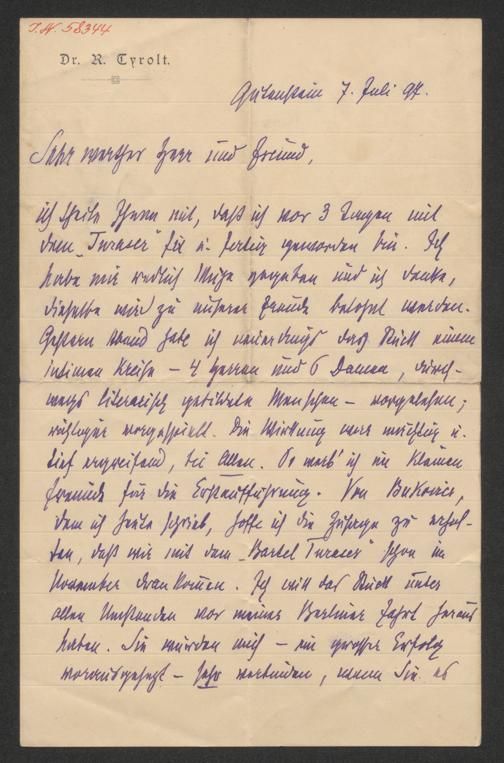 I.N. 58344
Dr. R. Tyrolt.
Gutenstein 7. Juli 97.
Sehr werther Herr und Freund,
ich theile Ihnen mit, daß ich vor 3 Tagen mit
dem „Turaser“ fix u. fertig geworden bin. Ich
habe mir redlich Mühe gegeben und ich denke,
dieselbe wird zu unserer Freude belohnt werden.
Gestern Abend habe ich neuerdings das Stück einem
intimen Kreise – 4 Herren und 6 Damen, durch-
wegs literarisch gebildete Menschen – vorgelesen;
richtiger vorgespielt. Die Wirkung war mächtig u.
tief ergreifend, bei Allen. So werb' ich im Kleinen
Freunde für die Erstaufführung. Von Bukovics,
dem ich heute schrieb, hoffe ich die Zusage zu erhal-
ten, daß wir mit dem „Bartel Turaser“ schon im
November drankomen. Ich will das Stück unter
allen Umständen vor meiner Berliner Fahrt heraus
haben. Sie würden mich – ein großer Erfolg
vorausgesezt – sehr verbinden, wenn Sie es